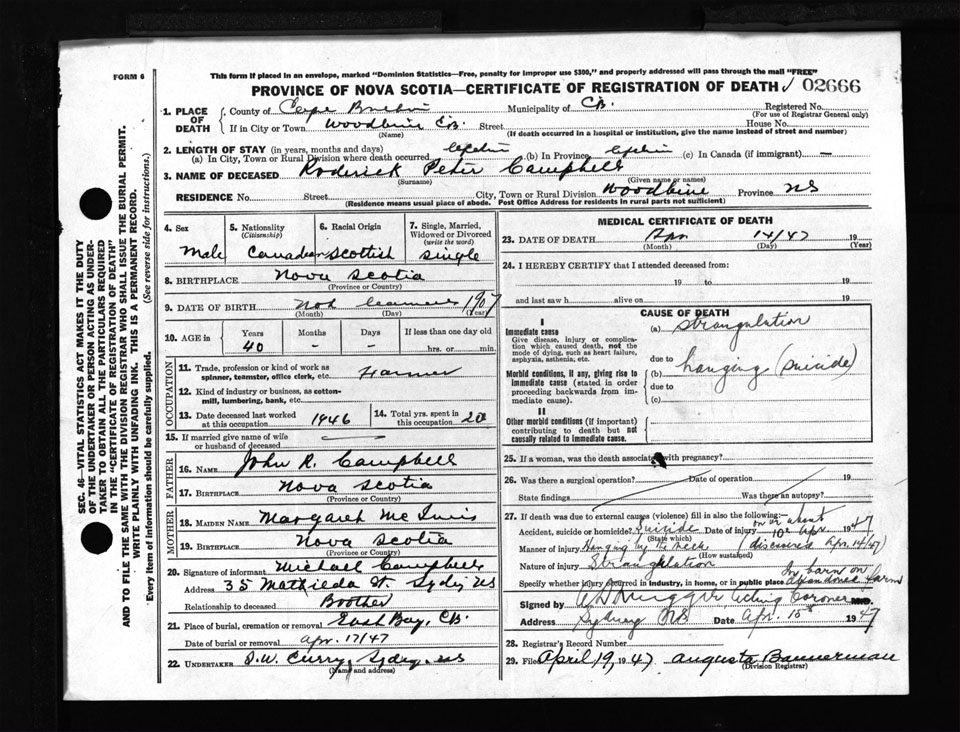 FORM 6
This form if placed in an envelope, marked "Dominion Statistics—Free, penalty for improper use $300," and properly addressed will pass through the mail "FREE"
PROVINCE OF NOVA SCOTIA—CERTIFICATE OF REGISTRATION OF DEATH 02666
1. PLACE OF DEATH
County of Cape Breton Municipality of C.B. Registered No.
(For use of Registrar General only)
If in City or Town Woodbine C.B. Street House No.
(Name) (If death occurred in a hospital or institution, give the name instead of street and number)
2. LENGTH OF STAY (in years, months and days)
(a) In City, Town or Rural Division where death occurred (b) In Province (c) In Canada (if immigrant) —
3. NAME OF DECEASED Roderick Peter Campbell
(Surname) (Given name or names)
RESIDENCE No. Street City, Town or Rural Division Woodbine Province NS
(Residence means usual place of abode. Post Office Address for residents in rural parts not sufficient)
4. Sex
Male
5. Nationality
(Citizenship)
Canadian
6. Racial Origin
Scottish
7. Single, Married, Widowed or Divorced
(write the word)
Single
8. BIRTHPLACE Nova Scotia
(Province or Country)
9. DATE OF BIRTH Not 1907
(Month) (Day) (Year)
10. AGE in
Years Months Days If less than one day old
40 - - hrs. or min.
OCCUPATION
11. Trade, profession or kind of work as spinner, teamster, office clerk, etc. Farmer
12. Kind of industry or business, as cotton-mill, lumbering, bank, etc.
13. Date deceased last worked at this occupation 1946
14. Total yrs. spent in this occupation 20
15. If married give name of wife or husband of deceased
FATHER
16. NAME John R. Campbell
17. BIRTHPLACE Nova Scotia
(Province or Country)
MOTHER
18. MAIDEN NAME Margaret McInnis
19. BIRTHPLACE Nova Scotia
(Province or Country)
20. Signature of informant Michael Campbell
Address 35 Mathilda St. Sydney NS
Relationship to deceased Brother
21. Place of burial, cremation or removal East Bay, C.B.
Date of burial or removal Apr. 17/47
22. UNDERTAKER Curry, Sydney, NS
(Name and address)
MEDICAL CERTIFICATE OF DEATH
23. DATE OF DEATH Apr 14/47 19
(Month) (Day) (Year)
24. I HEREBY CERTIFY that I attended deceased from:
19 to 19
and last saw h alive on 19
CAUSE OF DEATH
I
Immediate cause
Give disease, injury or complication which caused death, not the mode of dying, such as heart failure, asphyxia, asthenia, etc.
(a) Strangulation
due to
Morbid conditions, if any, giving rise to immediate cause (stated in order proceeding backwards from immediate cause).
(b) hanging (suicide)
due to
(c)
II
Other morbid conditions (if important) contributing to death but not causally related to immediate cause.
25. If a woman, was the death associated with pregnancy?
26. Was there a surgical operation? Date of operation 19
State findings Was there an autopsy?
27. If death was due to external causes (violence) fill in also the following:— on or about
Accident, suicide or homicide? Suicide Date of injury 10th Apr 1947
(State which)
Manner of injury Hanging by the neck (discovered Apr. 14/47)
(How sustained)
Nature of injury Strangulation
Specify whether injury occurred in industry, in home, or in public place In barn on abandoned farm
Signed by Acting Coroner M.D.
Address Sydney NS Date Apr. 15th 1947
28. Registrar's Record Number
29. Filed April 19, 1947 Augusta Bannerman
(Division Registrar)
SEC. 46—VITAL STATISTICS ACT MAKES IT THE DUTY OF THE UNDERTAKER OR PERSON ACTING AS UNDERTAKER TO OBTAIN ALL THE PARTICULARS REQUIRED IN THE "CERTIFICATE OF REGISTRATION OF DEATH" AND TO FILE THE SAME WITH THE DIVISION REGISTRAR WHO SHALL ISSUE THE BURIAL PERMIT.
WRITE PLAINLY WITH UNFADING INK. THIS IS A PERMANENT RECORD.
Every item of information should be carefully supplied. (See reverse side for instructions.)